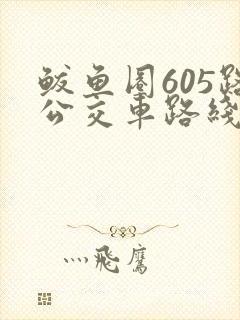 鲅鱼圈605路
公交车路线
灬飞鹰